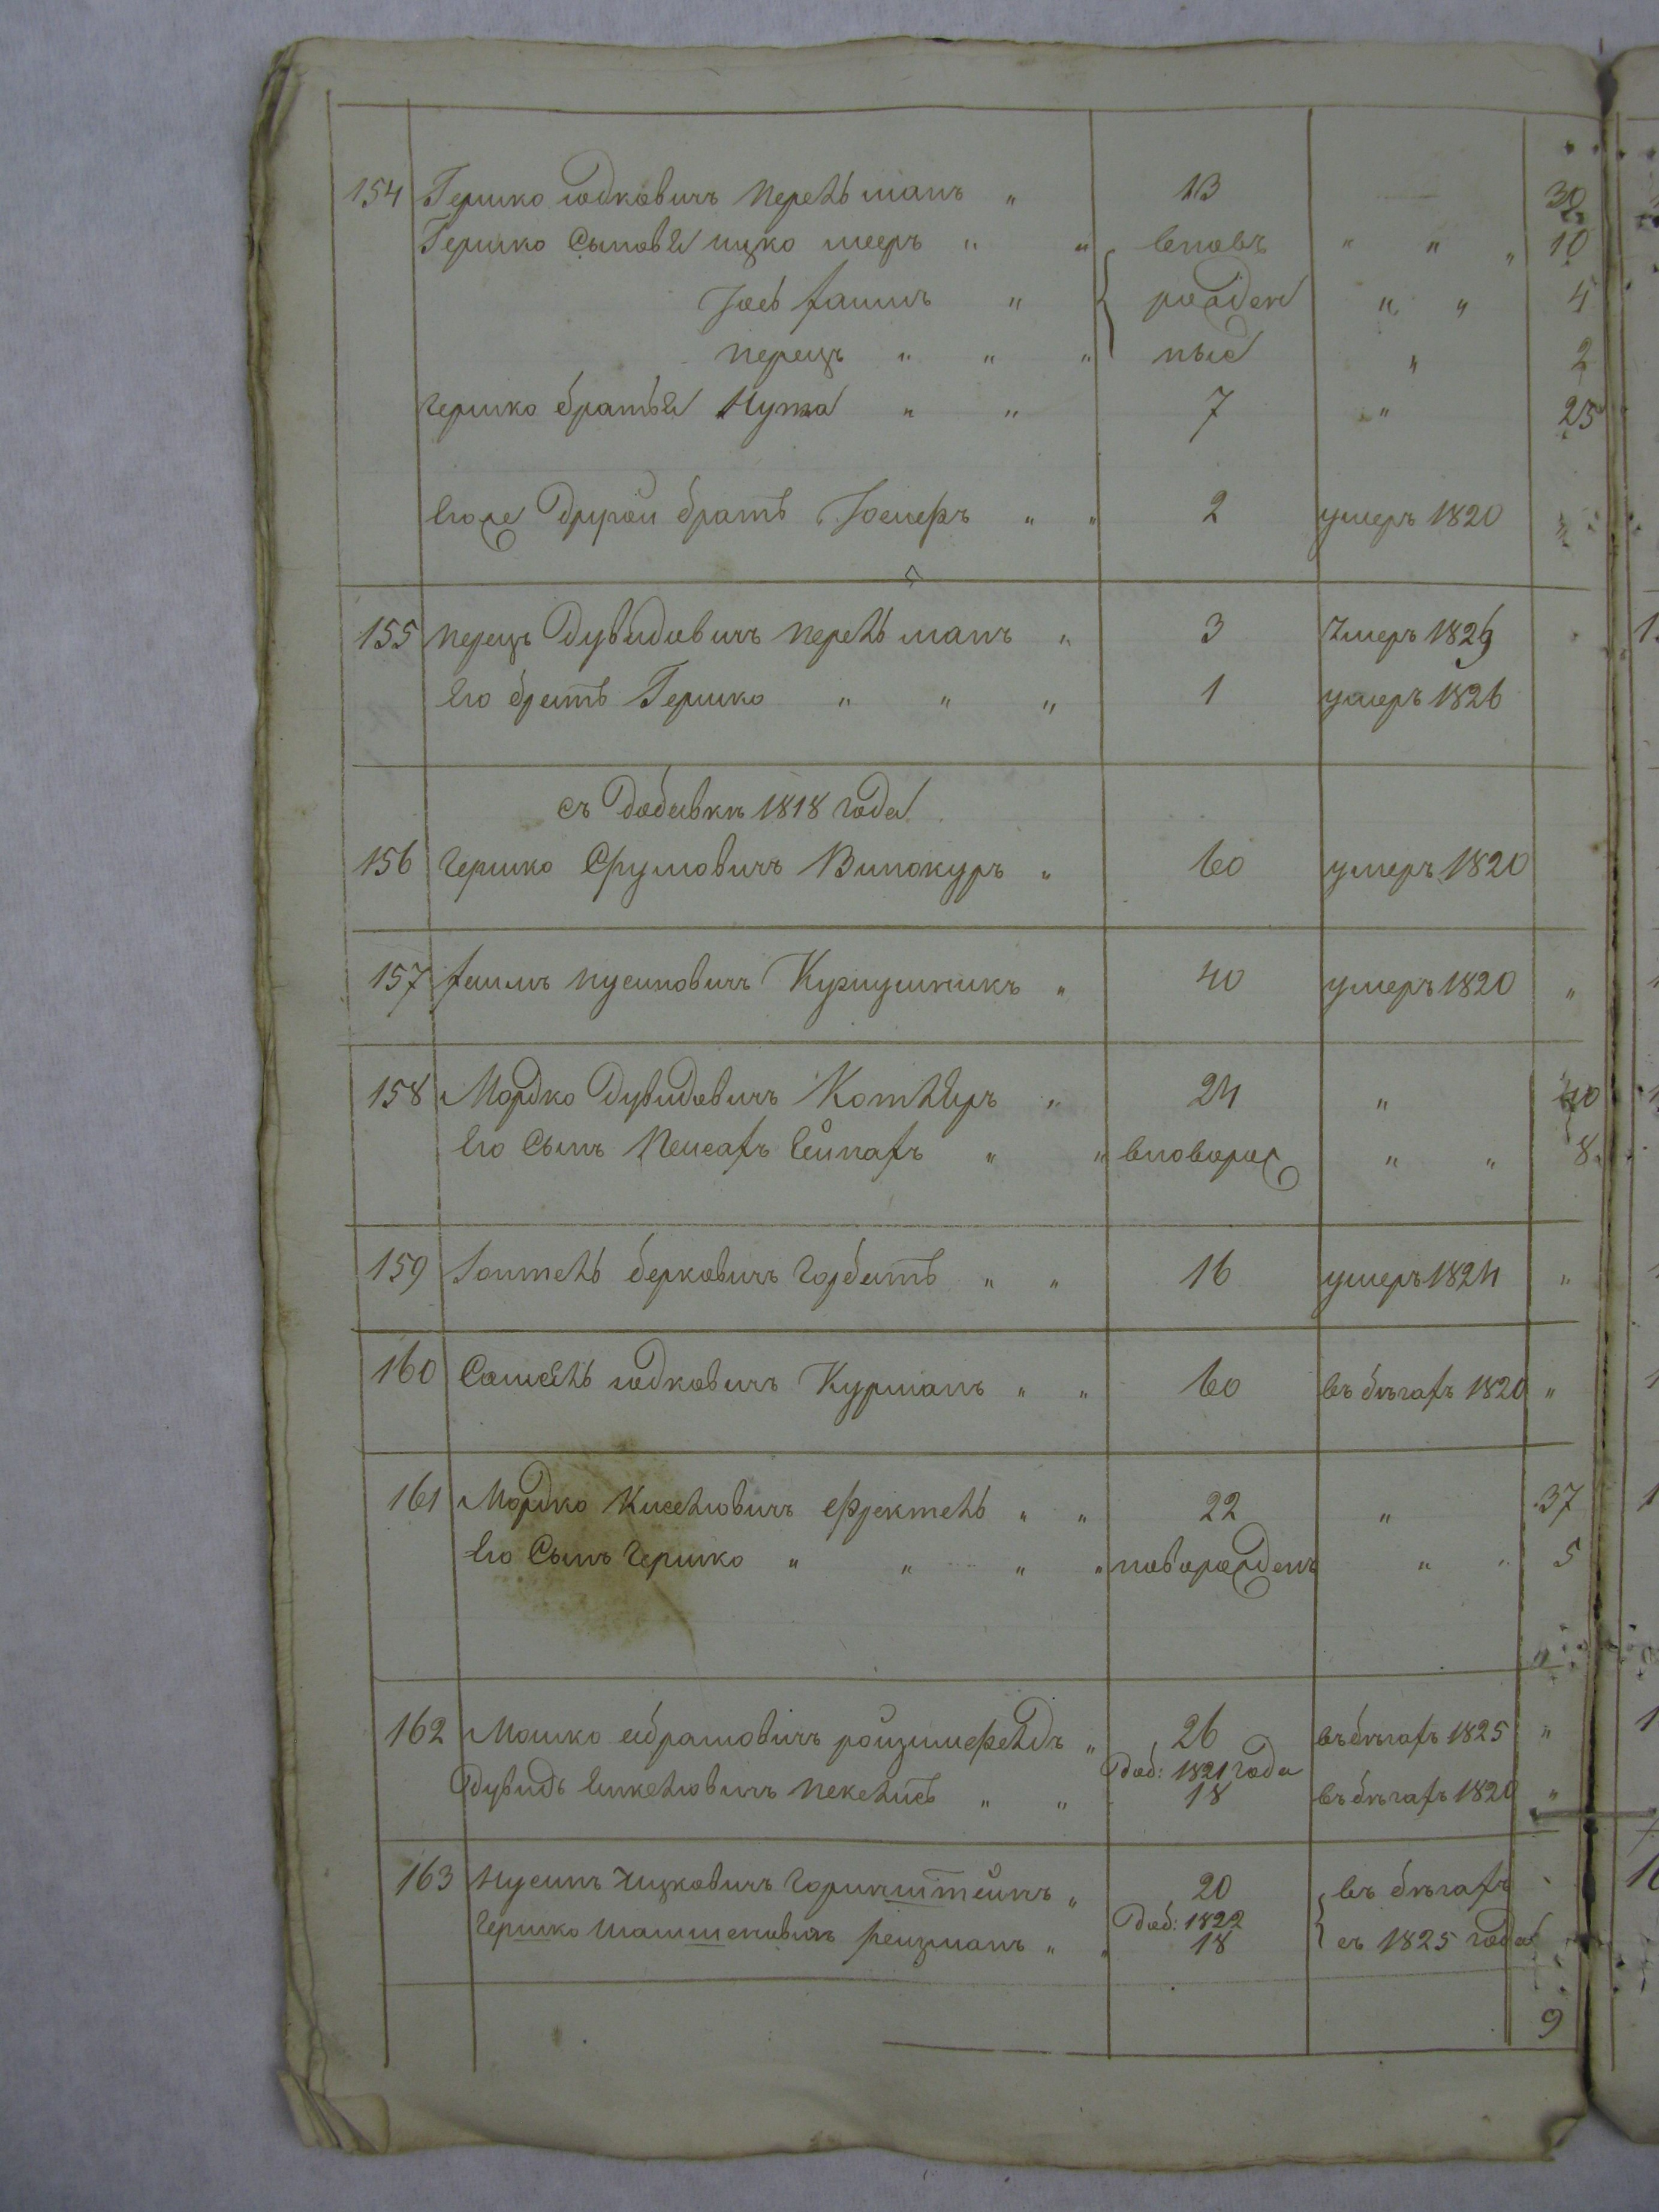 154 Гершко юдковичъ перельманъ " 13 30
Гершко Сыновья ицко мееръ " " вновь " " " 10
Јось хаимъ " рожден " " 4
перецъ " " " ные " 2
гершко братья Нута " " 7 " 25
Егоже Другой братъ Јосифъ " " 2 умеръ 1820
155 перецъ Дувидовичъ перельманъ " 3 Умеръ 1829
Его братъ Гершко " " " 1 умеръ 1826
съ Добавки 1818 года
156 гершко Сруловичъ Винокуръ " 60 умеръ 1820
157 хаимъ нусиновичъ Кушнирикъ " 40 умеръ 1820 "
158 Мордко Дувидовичъ Котляръ " 24 " 40
Его Сынъ Пейсахъ Ейнахъ " " вноворож " " 8
159 берковичъ горбатъ " " 16 умеръ 1824 "
160 юдковичъ Курманъ " " 60 въ бѣгахъ 1820 "
161 Мордко Киселювичъ " " 22 " 37
Его Сынъ гершко " " " " новорожденъ " " 5
"
162 Мошко абрамовичъ ройзинфельдъ " 26 въ бѣгахъ 1825 "
Доб: 1821 года
Дувидъ " " 18 въ бѣгахъ 1820 "
163 Нусинъ Ицковичъ горинштейнъ " 20 въ бѣгахъ
Доб: 1822
гершко рейзманъ " " 18 съ 1825 года
9